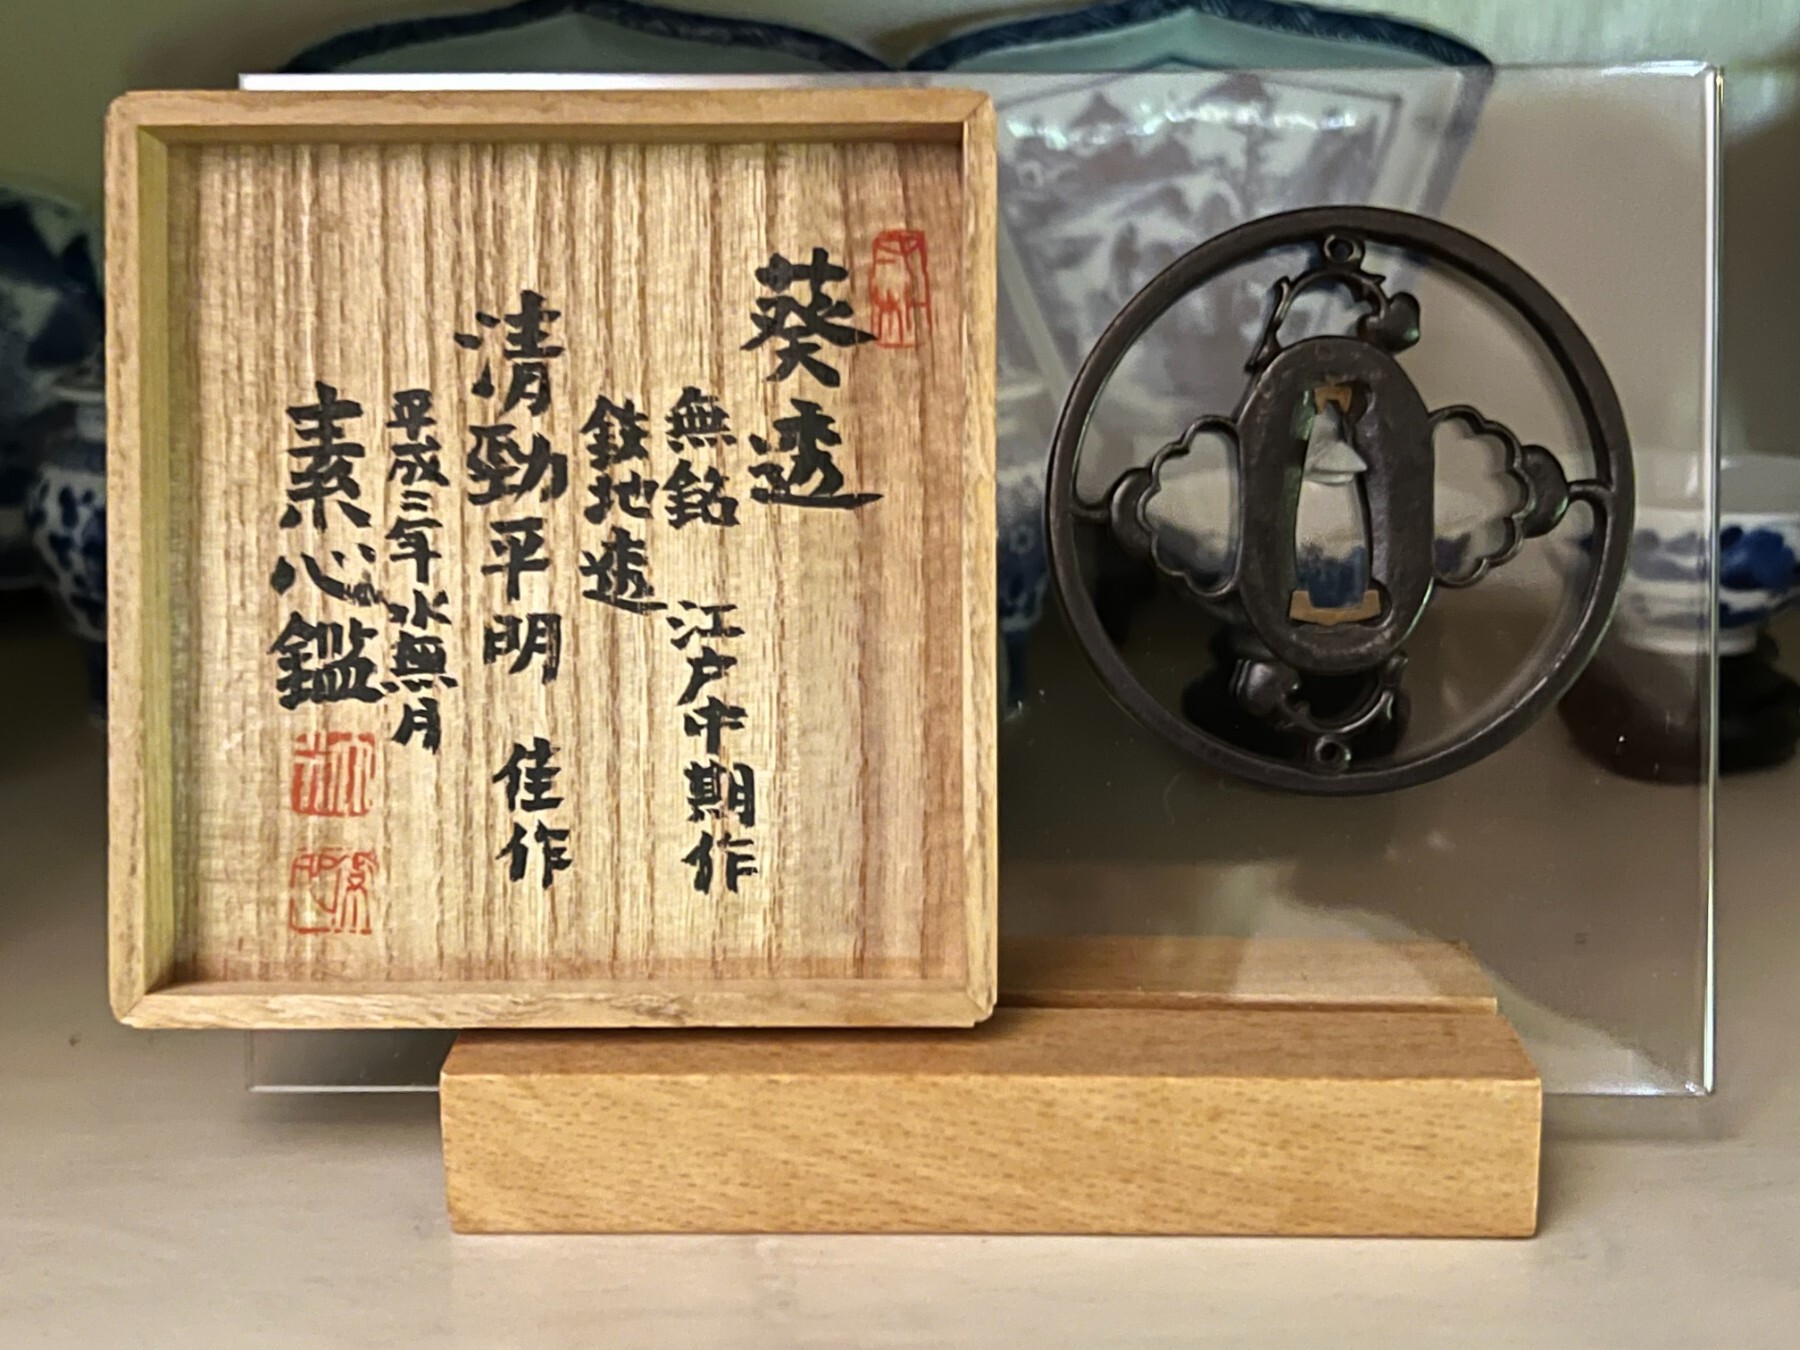 葵透
無銘　江戸中期作
鉄地透
清勁平明　佳作
平成三年水無月
素心鑑